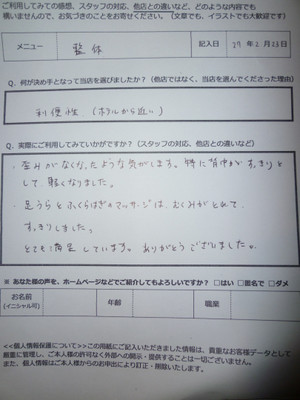 ご利用してみての感想、スタッフの対応、他店との違いなど、どのような内容でも
構いませんので、お気づきのことをお寄せください（文章でも、イラストでも大歓迎です）
メニュー 整体 記入日 27年2月23日
Q．何が決め手となって当店を選びましたか？（他店ではなく、当店を選んでくださった理由）
利便性（ホテルから近い）
Q．実際にご利用してみていかがですか？（スタッフの対応、他店との違いなど）
・歪みがなくなったような気がします。特に背中がすっきりと
して軽くなりました。
・足うらとふくらはぎのマッサージは、むくみがとれて、
すっきりしました。
とても満足しています。ありがとうございました。
※ あなた様の声を、ホームページなどでご紹介してもよろしいですか？ □はい □匿名で □ダメ
お名前 年齢 職業
（イニシャル可）
＜個人情報保護について＞この用紙にご記入いただきました情報は、貴重なお客様データとして
厳重に管理し、ご本人様の許可なく外部への開示・提供することは一切ございません。
また、個人情報はご本人様からのお申出により訂正・削除いたします。